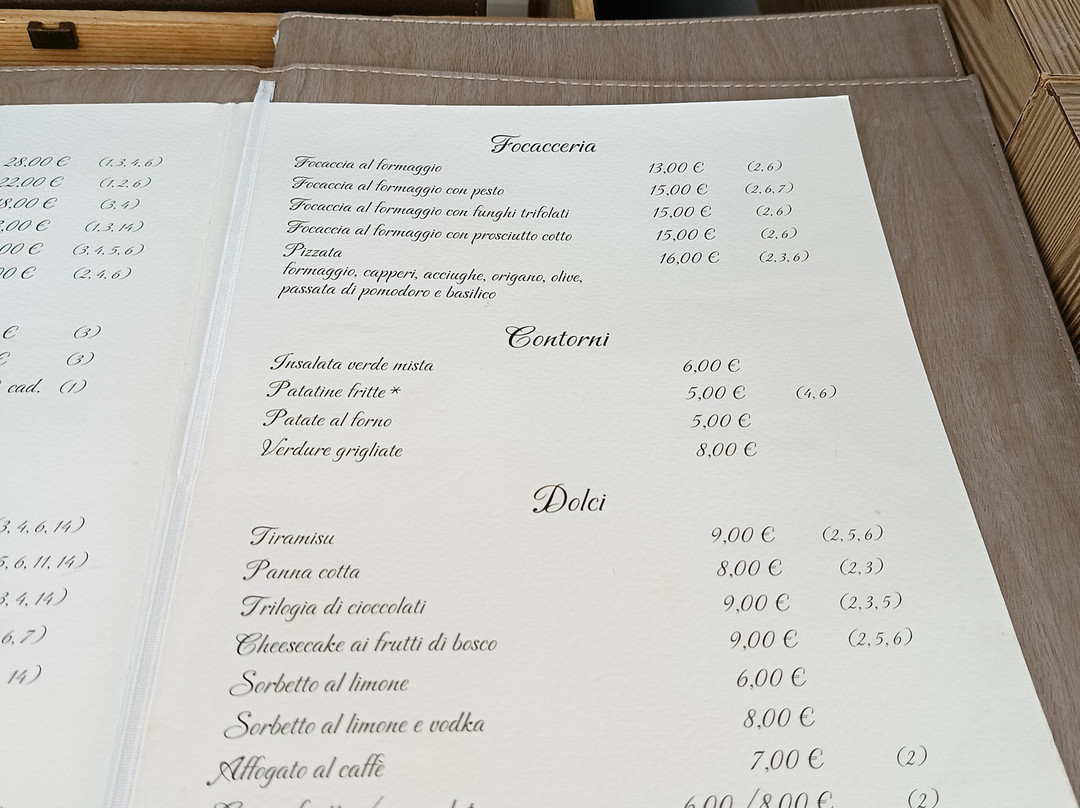 28,00 € (1,3,4,6)
22,00 € (1,2,6)
8,00 € (3,4)
,00 € (1,3,14)
00 € (3,4,5,6)
00 € (2,4,6)
€ (3)
€ (3)
cad. (1)
3, 4, 6, 14)
5, 6, 11, 14)
3, 4, 14)
6, 7)
14)
Focacceria
Focaccia al formaggio 13,00 € (2,6)
Focaccia al formaggio con pesto 15,00 € (2,6,7)
Focaccia al formaggio con funghi trifolati 15,00 € (2,6)
Focaccia al formaggio con prosciutto cotto 15,00 € (2,6)
Pizzata 16,00 € (2,3,6)
formaggio, capperi, acciughe, origano, olive,
passata di pomodoro e basilico
Contorni
Insalata verde mista 6,00 €
Patatine fritte * 5,00 € (4,6)
Patate al forno 5,00 €
Verdure grigliate 8,00 €
Dolci
Tiramisu 9,00 € (2,5,6)
Panna cotta 8,00 € (2,3)
Trilogia di cioccolati 9,00 € (2,3,5)
Cheesecake ai frutti di bosco 9,00 € (2,5,6)
Sorbetto al limone 6,00 €
Sorbetto al limone e vodka 8,00 €
Affogato al caffè 7,00 € (2)
6,00 /8,00 € (2)